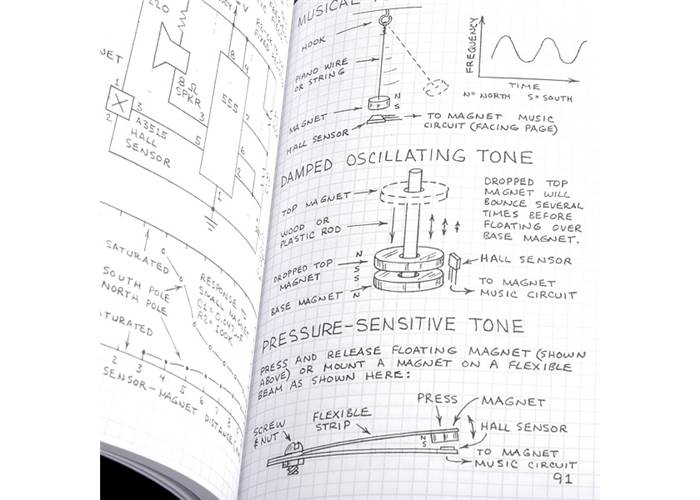 220
8 Ω
SPKR
8
4
555
NET
1
3
2
A3515
HALL
SENSOR
5
3
6
2
1
SATURATED
SOUTH POLE
NORTH POLE
RESPONSE
SMALL
R2= 200K
2
3
4
5
6
7
8
SENSOR-MAGNET DISTANCE
MUSICAL
HOOK
PIANO WIRE
OR STRING
MAGNET
N
S
HALL SENSOR
TO MAGNET MUSIC
CIRCUIT (FACING PAGE)
FREQUENCY
TIME
N=NORTH S=SOUTH
DAMPED OSCILLATING TONE
TOP MAGNET
WOOD OR
PLASTIC ROD
DROPPED TOP
MAGNET
N
S
S
N
BASE MAGNET
DROPPED TOP
MAGNET WILL
BOUNCE SEVERAL
TIMES BEFORE
FLOATING OVER
BASE MAGNET.
HALL SENSOR
TO MAGNET
MUSIC CIRCUIT
PRESSURE-SENSITIVE TONE
PRESS AND RELEASE FLOATING MAGNET (SHOWN
ABOVE) OR MOUNT A MAGNET ON A FLEXIBLE
BEAM AS SHOWN HERE:
SCREW
& NUT
FLEXIBLE
STRIP
PRESS
MAGNET
N
S
HALL SENSOR
TO MAGNET
MUSIC CIRCUIT
91